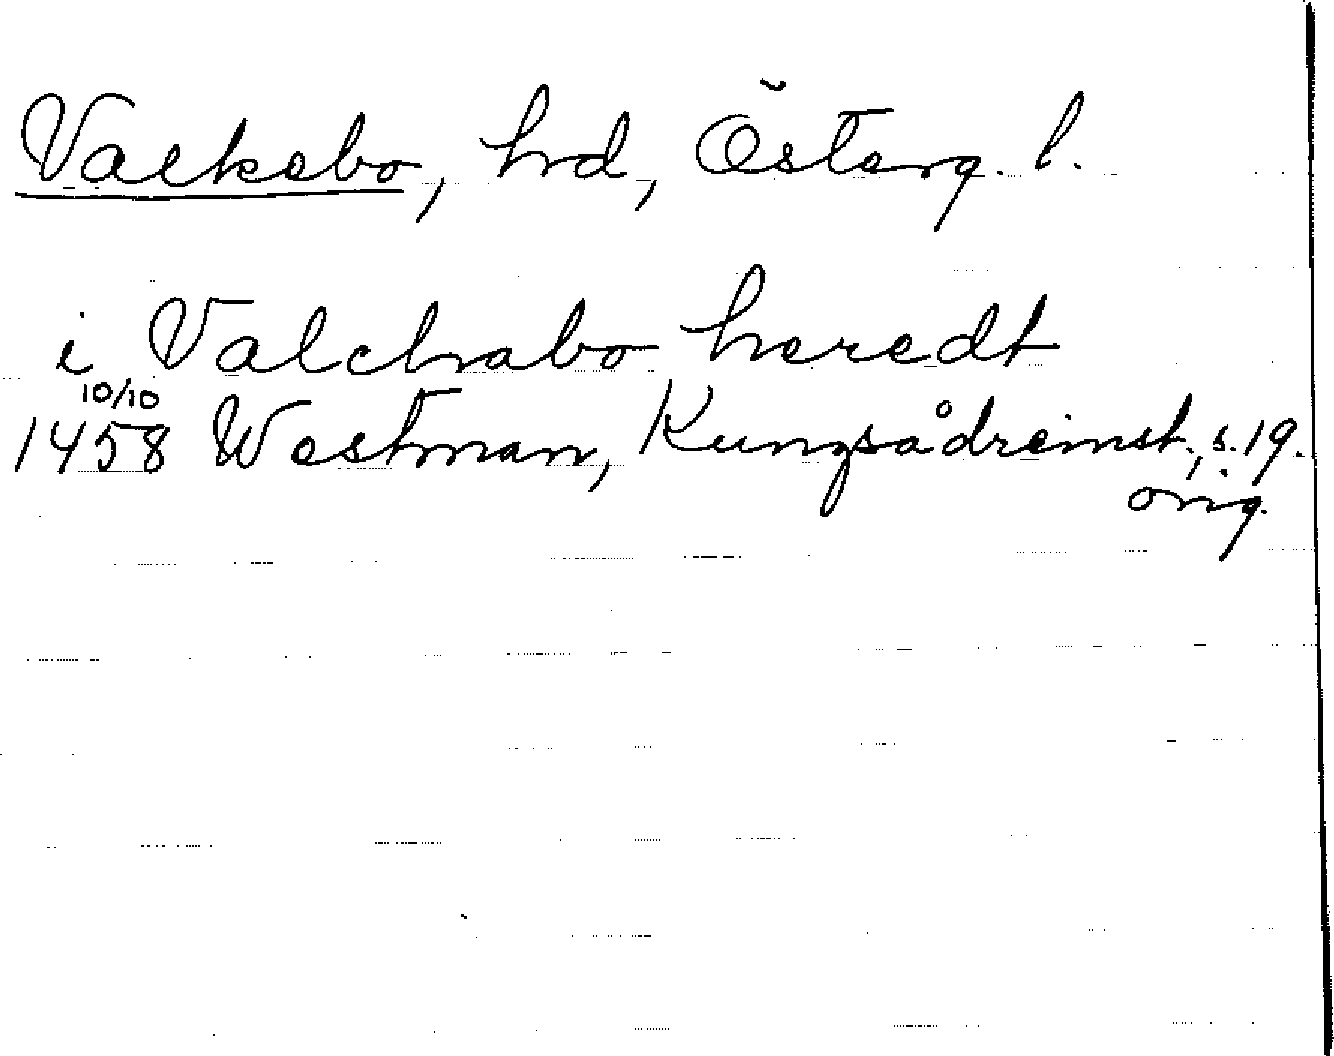 Valkebo, hrd, Österg. l.
i Valchabo heredt
10/10
1458 Westman, Kungsådreinst., s. 19.
orig.